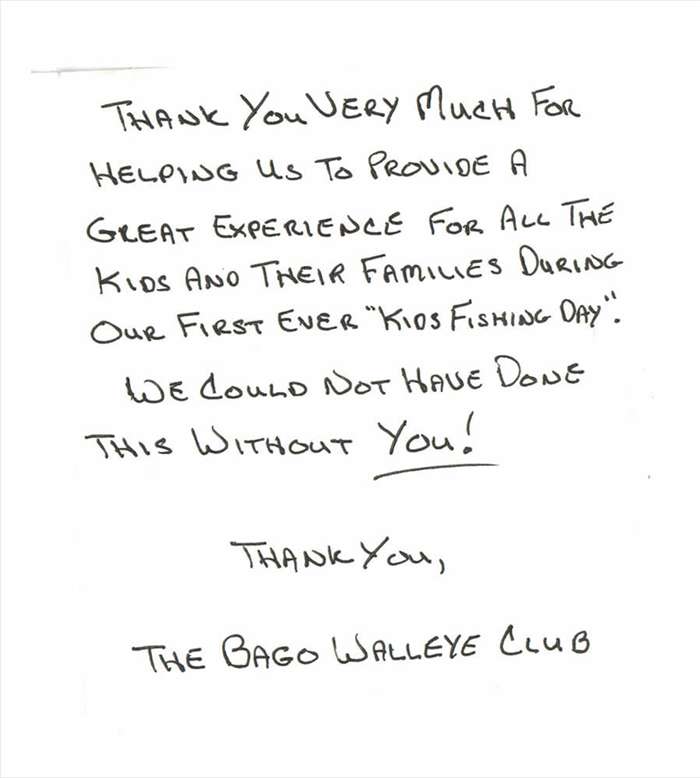 THANK YOU VERY MUCH FOR
HELPING US TO PROVIDE A
GREAT EXPERIENCE FOR ALL THE
KIDS AND THEIR FAMILIES DURING
OUR FIRST EVER "KIDS FISHING DAY".
WE COULD NOT HAVE DONE
THIS WITHOUT YOU!
THANK YOU,
THE BAGO WALLEYE CLUB